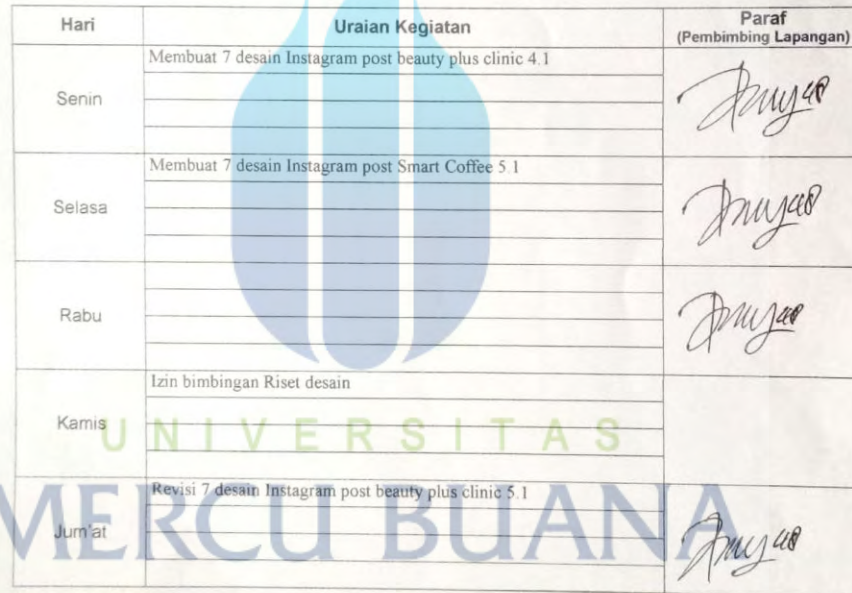 Hari Uraian Kegiatan Paraf
(Pembimbing Lapangan)
Membuat 7 desain Instagram post beauty plus clinic 4.1
Senin
Membuat 7 desain Instagram post Smart Coffee 5.1
Selasa
Rabu
Izin bimbingan Riset desain
Kamis
UNIVERSITAS
Revisi 7 desain Instagram post beauty plus clinic 5.1
Jum'at
MERCU BUANA